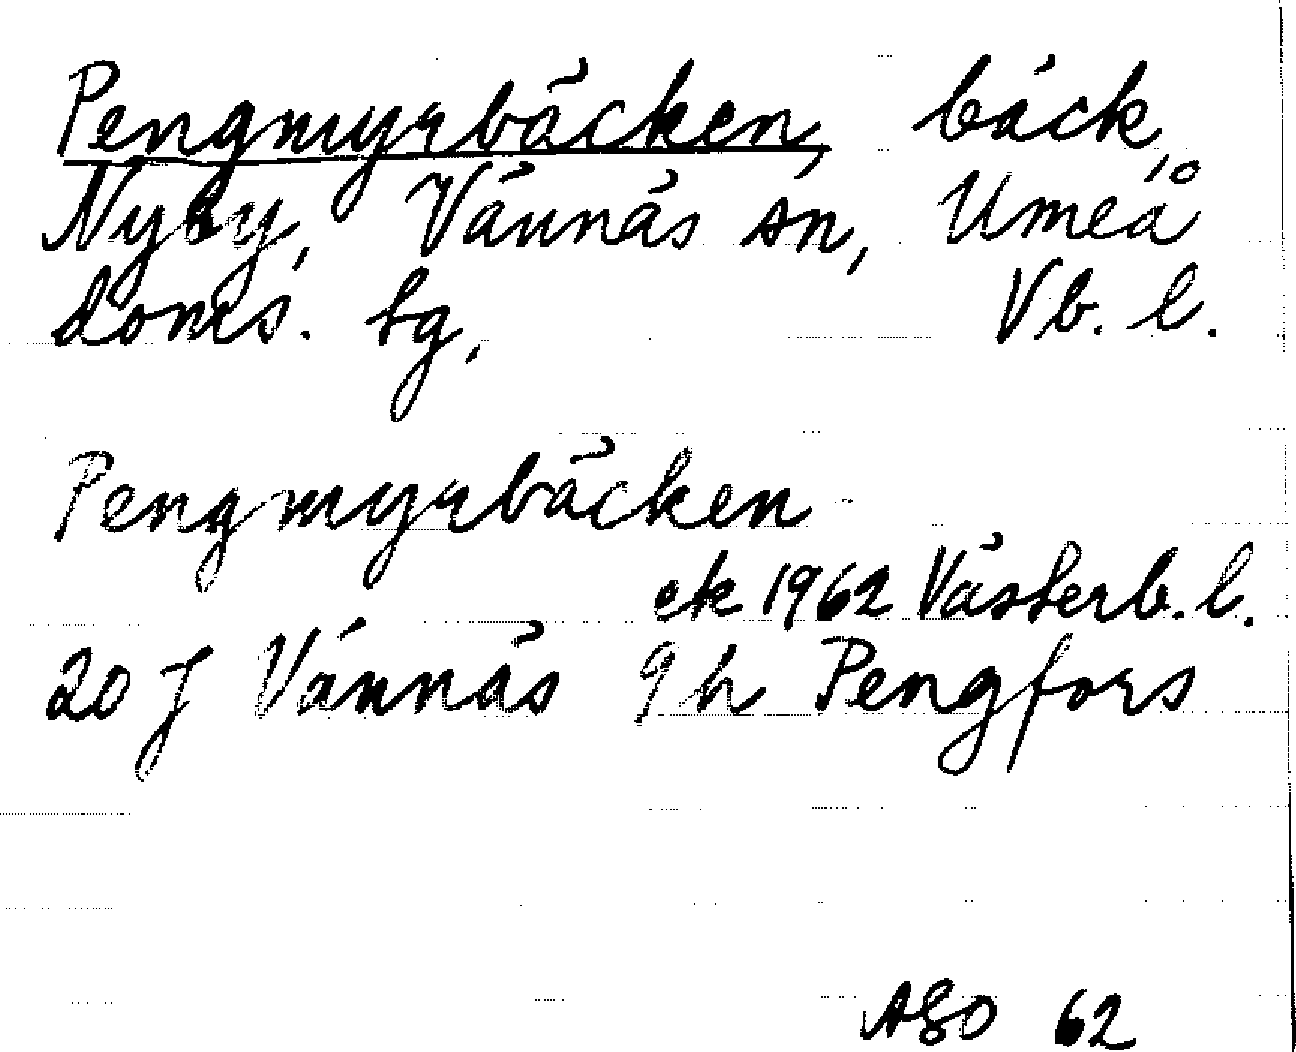 Pengmyrbäcken, bäck,
Nyby, Vännäs sn, Umeå
doms. tg, Vb. l.
Pengmyrbäcken
ek 1962 Västerb. l.
20 J Vännäs 9 h Pengfors
ASO 62